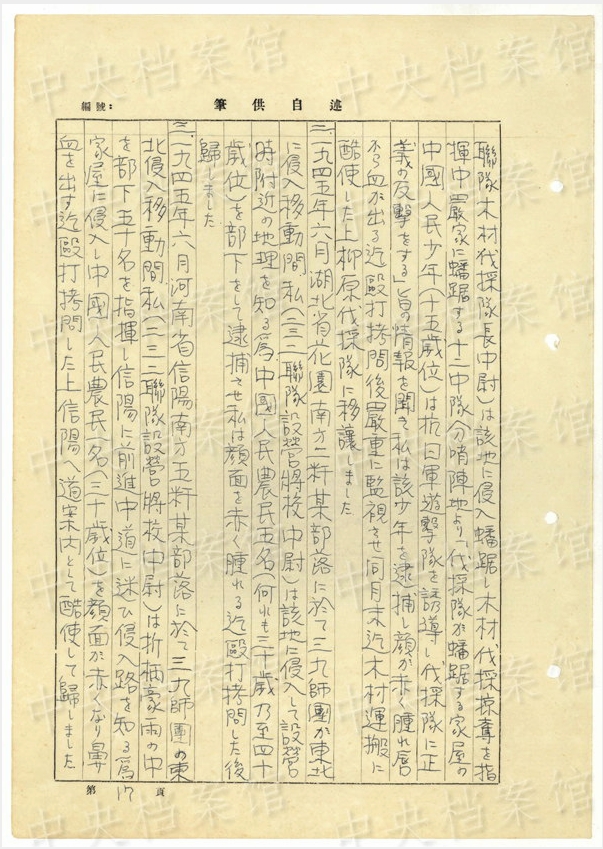 中央档案馆
編號:
筆供自述
聯隊木材伐採隊長中尉)は該地に侵入蟠踞し木材伐採掠奪を指
揮中嚴家に蟠踞する十二中隊(分哨陣地)より「伐採隊が蟠踞する家屋の
中國人民少年(十五歲位)は抗日軍遊擊隊を誘導し伐採隊に正
義の反擊をする」旨の情報を聞き私は該少年を逮捕し顏が赤く腫れ唇
から血が出る迄毆打拷問後嚴重に監視させ同月末迄木材運搬に
酷使した上柳原伐採隊に移讓しました
二、一九四五年六月湖北省花園南方二粁某部落に於て三九師團が東北
に侵入移動間私(二三二聯隊設營將校中尉)は該地に侵入して設營
時附近の地理を知る爲中國人民農民五名(何れも三十歲乃至四十
歲位)を部下をして逮捕させ私は顏面を赤く腫れる迄毆打拷問した後
歸しました
三、一九四五年六月河南省信陽南方五粁某部落に於て三九師團の東
北侵入移動間私(二三二聯隊設營將校中尉)は折柄豪雨の中
を部下五十名を指揮し信陽に前進中道に迷ひ侵入路を知る爲
家屋に侵入し中國人民農民一名(三十歲位)を顏面が赤くなり鼻
血を出す迄毆打拷問した上信陽へ道案内として酷使して歸しました
第17頁